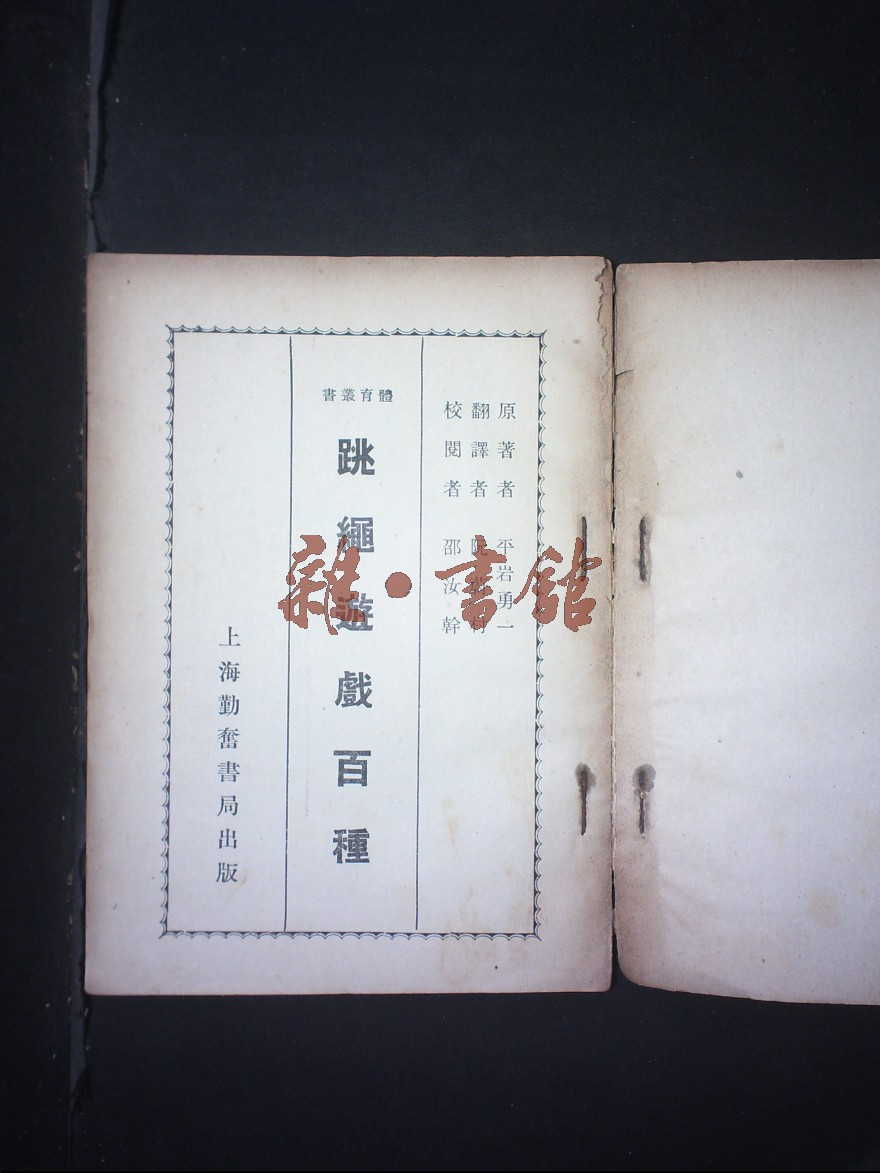 原著者 平岩勇一
翻譯者 阮 村
校閱者 邵汝幹
體育叢書
跳繩遊戲百種
上海勤奮書局出版
雜·書館